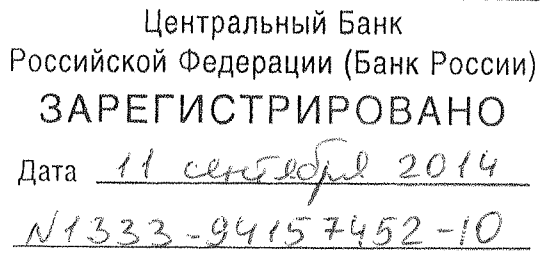 Центральный Банк
Российской Федерации (Банк России)
ЗАРЕГИСТРИРОВАНО
Дата 11 сентября 2014
N1333-94157452-10